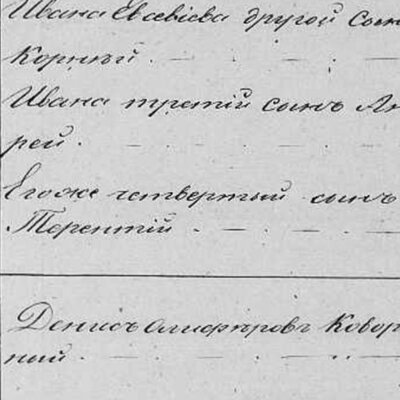 Ивана Евсевіева другой Сын
Корнѣй.
Ивана третій сынъ Ан
рей.
Егоже четвертый сынъ
Терентій
Денисъ Олиферовъ Ковор
ний.